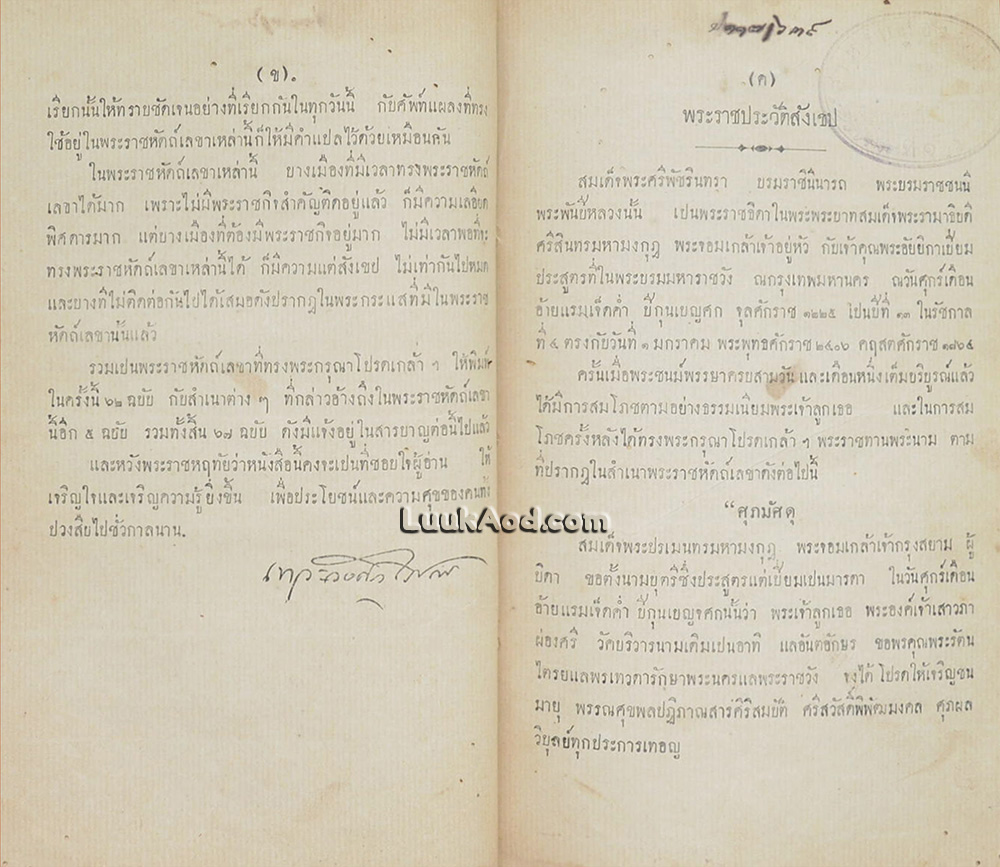 (ข).
เรียกนั้นให้ทราบชัดเจนอย่างที่เรียกกันในทุกวันนี้ กับศัพท์แผลงที่ทรง
ใช้อยู่ในพระราชหัตถ์เลขาเหล่านี้ก็ให้มีคำแปลไว้ด้วยเหมือนกัน
ในพระราชหัตถ์เลขาเหล่านี้ บางเมืองที่มีเวลาทรงพระราชหัตถ์
เลขาได้มาก เพราะไม่มีพระราชกิจสำคัญติดอยู่แล้ว ก็มีความเลอียด
พิศดารมาก แต่บางเมืองที่ต้องมีพระราชกิจอยู่มาก ไม่มีเวลาพอที่จะ
ทรงพระราชหัตถ์เลขาเหล่านี้ได้ ก็มีความแต่สังเขป ไม่เท่ากันไปหมด
และบางทีไม่ติดต่อกันไปได้เสมอดังปรากฏในพระกระแสที่มีในพระราช
หัตถ์เลขานั้นแล้ว
รวมเปนพระราชหัตถ์เลขาที่ทรงพระกรุณาโปรดเกล้า ฯ ให้พิมพ์
ในครั้งนี้ ๖๒ ฉบับ กับสำเนาต่าง ๆ ที่กล่าวอ้างถึงในพระราชหัตถ์เลขา
นี้อีก ๕ ฉบับ รวมทั้งสิ้น ๖๗ ฉบับ ดังมีแจ้งอยู่ในสารบาญต่อนี้ไปแล้ว
และหวังพระราชหฤทัยว่าหนังสือนี้คงจะเปนที่ชอบใจผู้อ่าน ให้
เจริญใจและเจริญความรู้ยิ่งขึ้น เพื่อประโยชน์และความศุขของคนทั้ง
ปวงสืบไปชั่วกาลนาน.
(ค)
พระราชประวัติสังเขป
สมเด็จพระศรีพัชรินทรา บรมราชินีนารถ พระบรมราชชนนี
พระพันปีหลวงนั้น เปนพระราชธิดาในพระบาทสมเด็จพระรามาธิบดี
ศรีสินทรมหามงกุฎ พระจอมเกล้าเจ้าอยู่หัว กับเจ้าคุณพระอัยยิกาเปี่ยม
ประสูตรที่ในพระบรมมหาราชวัง ณกรุงเทพมหานคร ณวันศุกร์เดือน
อ้ายแรมเจ็ดค่ำ ปีกุนเบญศก จุลศักราช ๑๒๒๕ เปนปีที่ ๑๓ ในรัชกาล
ที่ ๔ ตรงกับวันที่ ๑ มกราคม พระพุทธศักราช ๒๔๐๖ คฤสตศักราช ๑๘๖๔
ครั้นเมื่อพระชนม์พรรษาครบสามวัน และเดือนหนึ่งเต็มบริบูรณ์แล้ว
ได้มีการสมโภชตามอย่างธรรมเนียมพระเจ้าลูกเธอ และในการสม
โภชครั้งหลังได้ทรงพระกรุณาโปรดเกล้า ฯ พระราชทานพระนาม ตาม
ที่ปรากฏในสำเนาพระราชหัตถ์เลขาดังต่อไปนี้
“ศุภมัศดุ
LuukAod.com
สมเด็จพระปรเมนทรมหามงกุฎ พระจอมเกล้าเจ้ากรุงสยาม ผู้
บิดา ขอตั้งนามบุตรีซึ่งประสูตรแต่เปี่ยมเปนมารดา ในวันศุกร์เดือน
อ้ายแรมเจ็ดค่ำ ปีกุนเบญจศกนั้นว่า พระเจ้าลูกเธอ พระองค์เจ้าเสาวภา
ผ่องศรี วัคบริวารนามเดิมเปนอาทิ แลอันตอักษร ขอพรคุณพระรัตน
ไตรยแลพรเทวดารักษาพระนครแลพระราชวัง จงได้ โปรดให้เจริญชน
มายุ พรรณศุขพลปฏิภาณสารศิริสมบัติ ศรีสวัสดิ์พิพัฒมงคล ศุภผล
วิบุลย์ทุกประการเทอญ